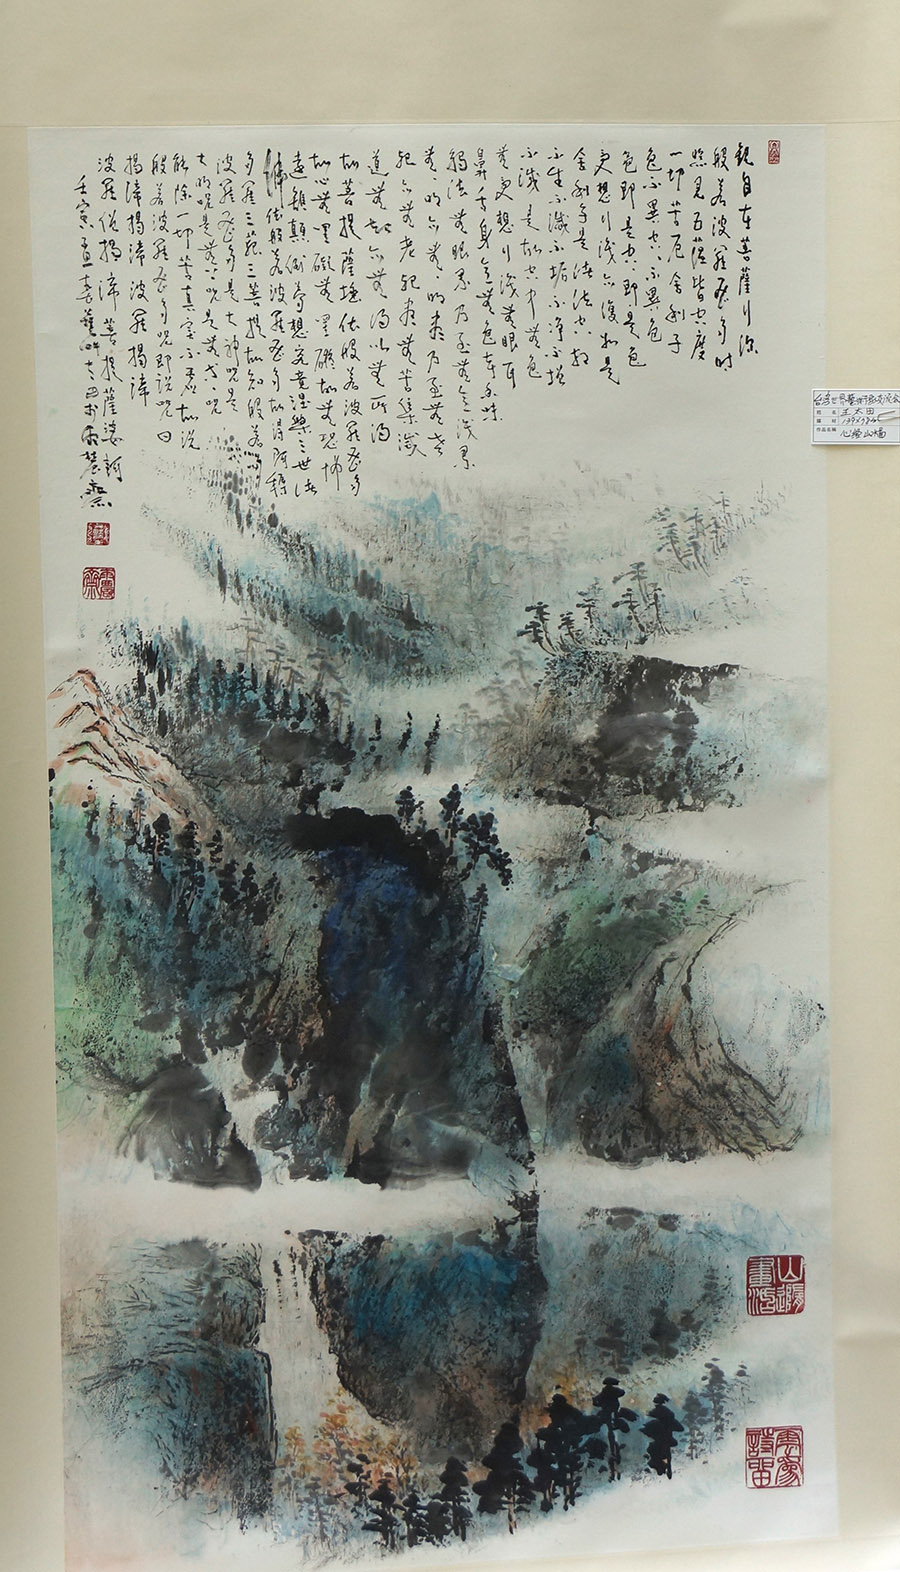 觀自在菩薩行深
般若波羅蜜多時
照見五蘊皆空度
一切苦厄舍利子
色不異空空不異色
色即是空空即是色
受想行識亦復如是
舍利子是諸法空相
不生不滅不垢不淨不增
不減是故空中無色
無受想行識無眼耳
鼻舌身意無色聲香味
觸法無眼界乃至無意識界
無無明亦無無明盡乃至無老
死亦無老死盡無苦集滅
道無智亦無得以無所得
故菩提薩埵依般若波羅蜜多
故心無罣礙無罣礙故無恐怖
遠離顛倒夢想究竟涅槃三世諸
佛依般若波羅蜜多故得阿耨
多羅三藐三菩提故知般若
波羅蜜多是大神咒是
大明咒是無上咒是無等等咒
能除一切苦真實不虛故說
般若波羅蜜多咒即說咒曰
揭諦揭諦波羅揭諦
波羅僧揭諦菩提薩婆訶
壬寅孟春
台灣世界藝術家交流會
姓名 王太田
作品名稱 心經山